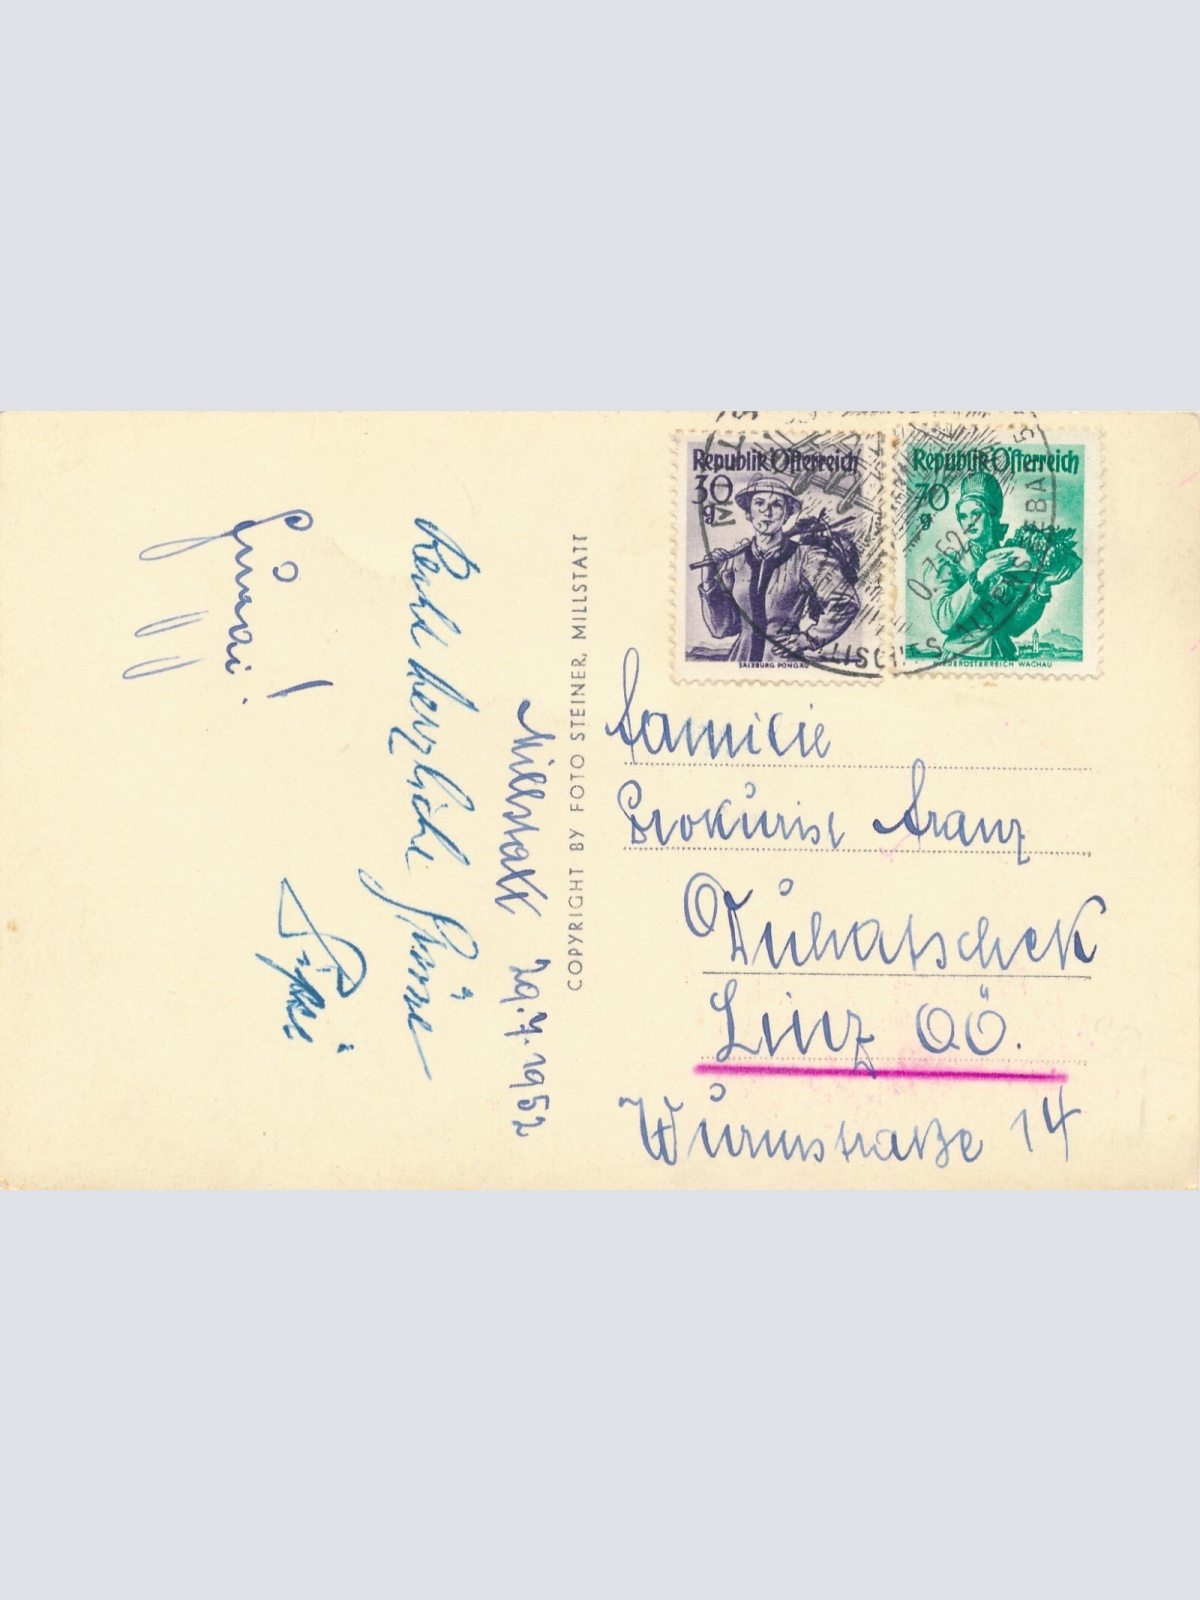 Millstatt 29.7.1952
Recht herzliche Grüße
COPYRIGHT BY FOTO STEINER, MILLSTATT
Republik Österreich
30
g
SALZBURG PONGAU
Republik Österreich
70
g
NIEDERÖSTERREICH WACHAU
Familie
Prokurist Franz
Duhatschek
Linz OÖ.
Wurmstraße 14